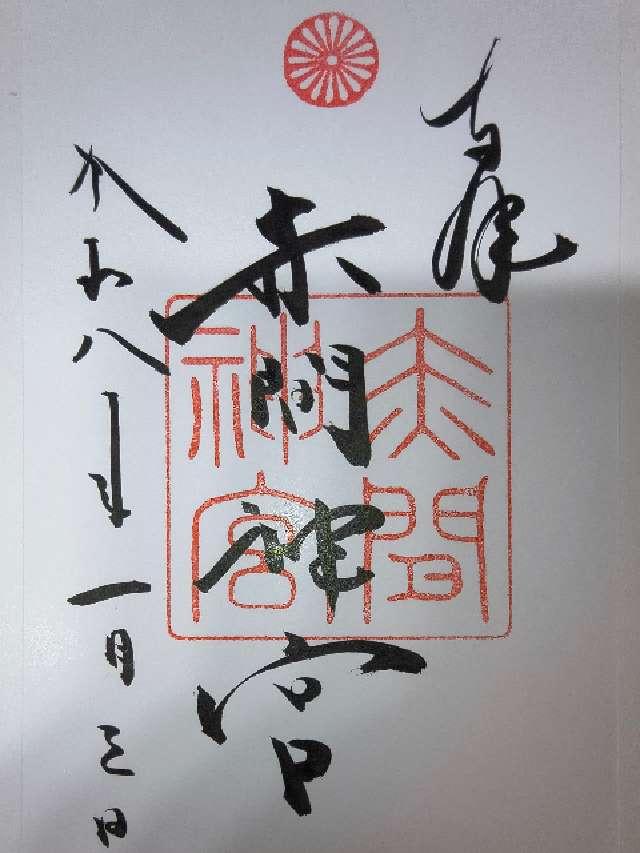 奉拝
赤間神宮
赤間神宮
令和八年一月三日